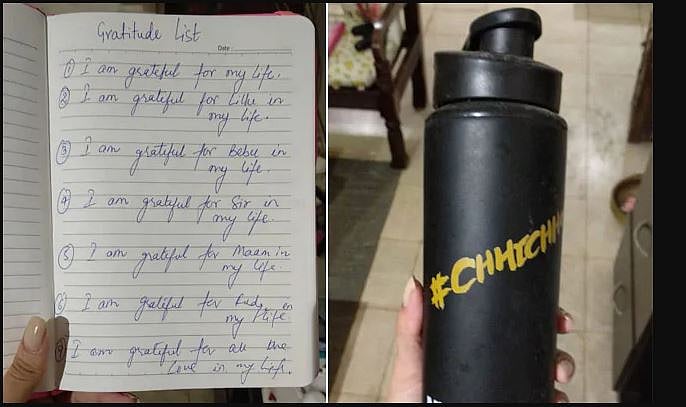 Gratitude List
Date :
① I am grateful for my life.
② I am grateful for Lillu in
my life.
③ I am grateful for Bebu in
my life.
④ I am grateful for Sir in
my life.
⑤ I am grateful for Maam in
my life.
⑥ I am grateful for in
my life
⑦ I am grateful for all the
love in my life.
#CHHICHH